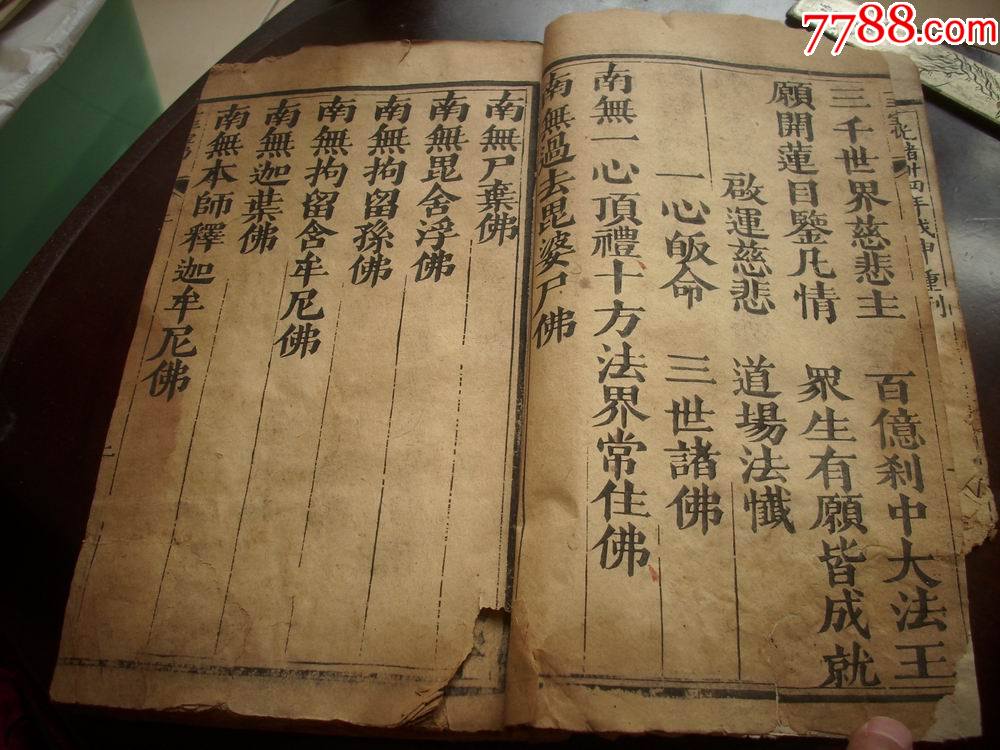 光緒卅四年戊申重刊
三千世界慈悲主 百億刹中大法王
願開蓮目鑒凡情 眾生有願皆成就
啟運慈悲 道場法懺
一心皈命 三世諸佛
南無一心頂禮十方法界常住佛
南無過去毘婆尸佛
南無尸棄佛
南無毘舍浮佛
南無拘留孫佛
南無拘留舍牟尼佛
南無迦葉佛
南無本師釋迦牟尼佛
7788.com